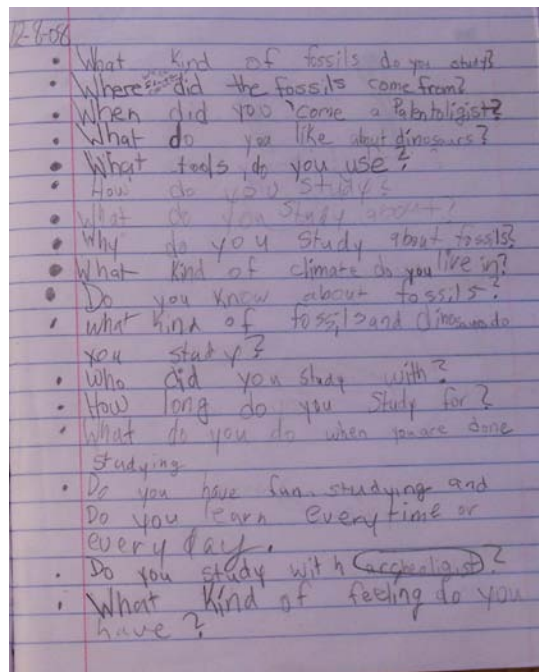 12-8-08
• What kind of fossils do you study?
• Where did the fossils come from?
• When did you 'come a Palentoligist?
• What do you like about dinosaurs?
• What tools do you use?
• How do you study?
• What do you study about?
• Why do you study about fossils?
• What kind of climate do you live in?
• Do you know about fossils?
• what kind of fossils and dinosaurs do
you study?
• Who did you study with?
• How long do you study for?
• What do you do when you are done
studying
• Do you have fun studying and
Do you learn every time or
every day.
• Do you study with ?
• What kind of feeling do you
have?